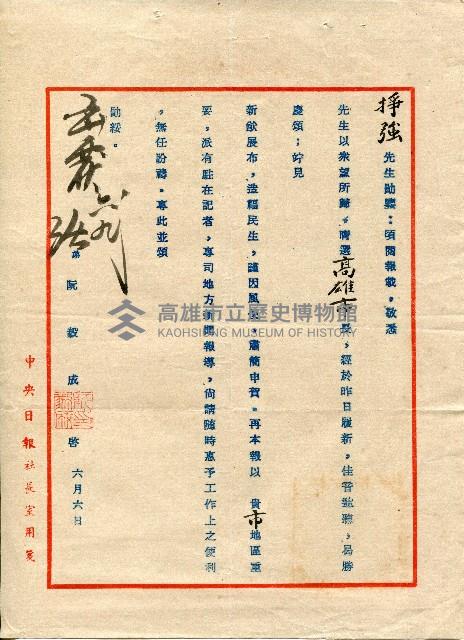 掙強 先生勛鑒：頃閱報載，敬悉
先生以衆望所歸，膺選高雄市長，經於昨日履新，佳音遠聽，曷勝
慶頌；竚見
新猷展布，造福民生，謹因風便，肅簡申賀。再本報以 貴市地區重
要，派有駐在記者，專司地方新聞報導，尚請隨時惠予工作上之便利
，無任盼禱。專此並頌
勛綏。
弟 阮毅成 啓 六月六日
中央日報社長室用箋
高雄市立歷史博物館
KAOHSIUNG MUSEUM OF HISTORY